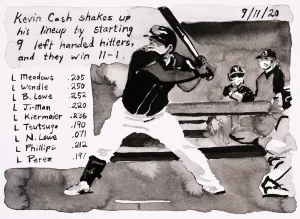 Kevin Cash shakes up
his lineup by starting
9 left handed hitters,
and they win 11-1.
9/11/20
L Meadows .205
L Wendle .250
L B. Lowe .252
L Ji-Man .220
L Kiermaier .236
L Tsutsugo .190
L N. Lowe .071
L Phillips .212
L Perez .197